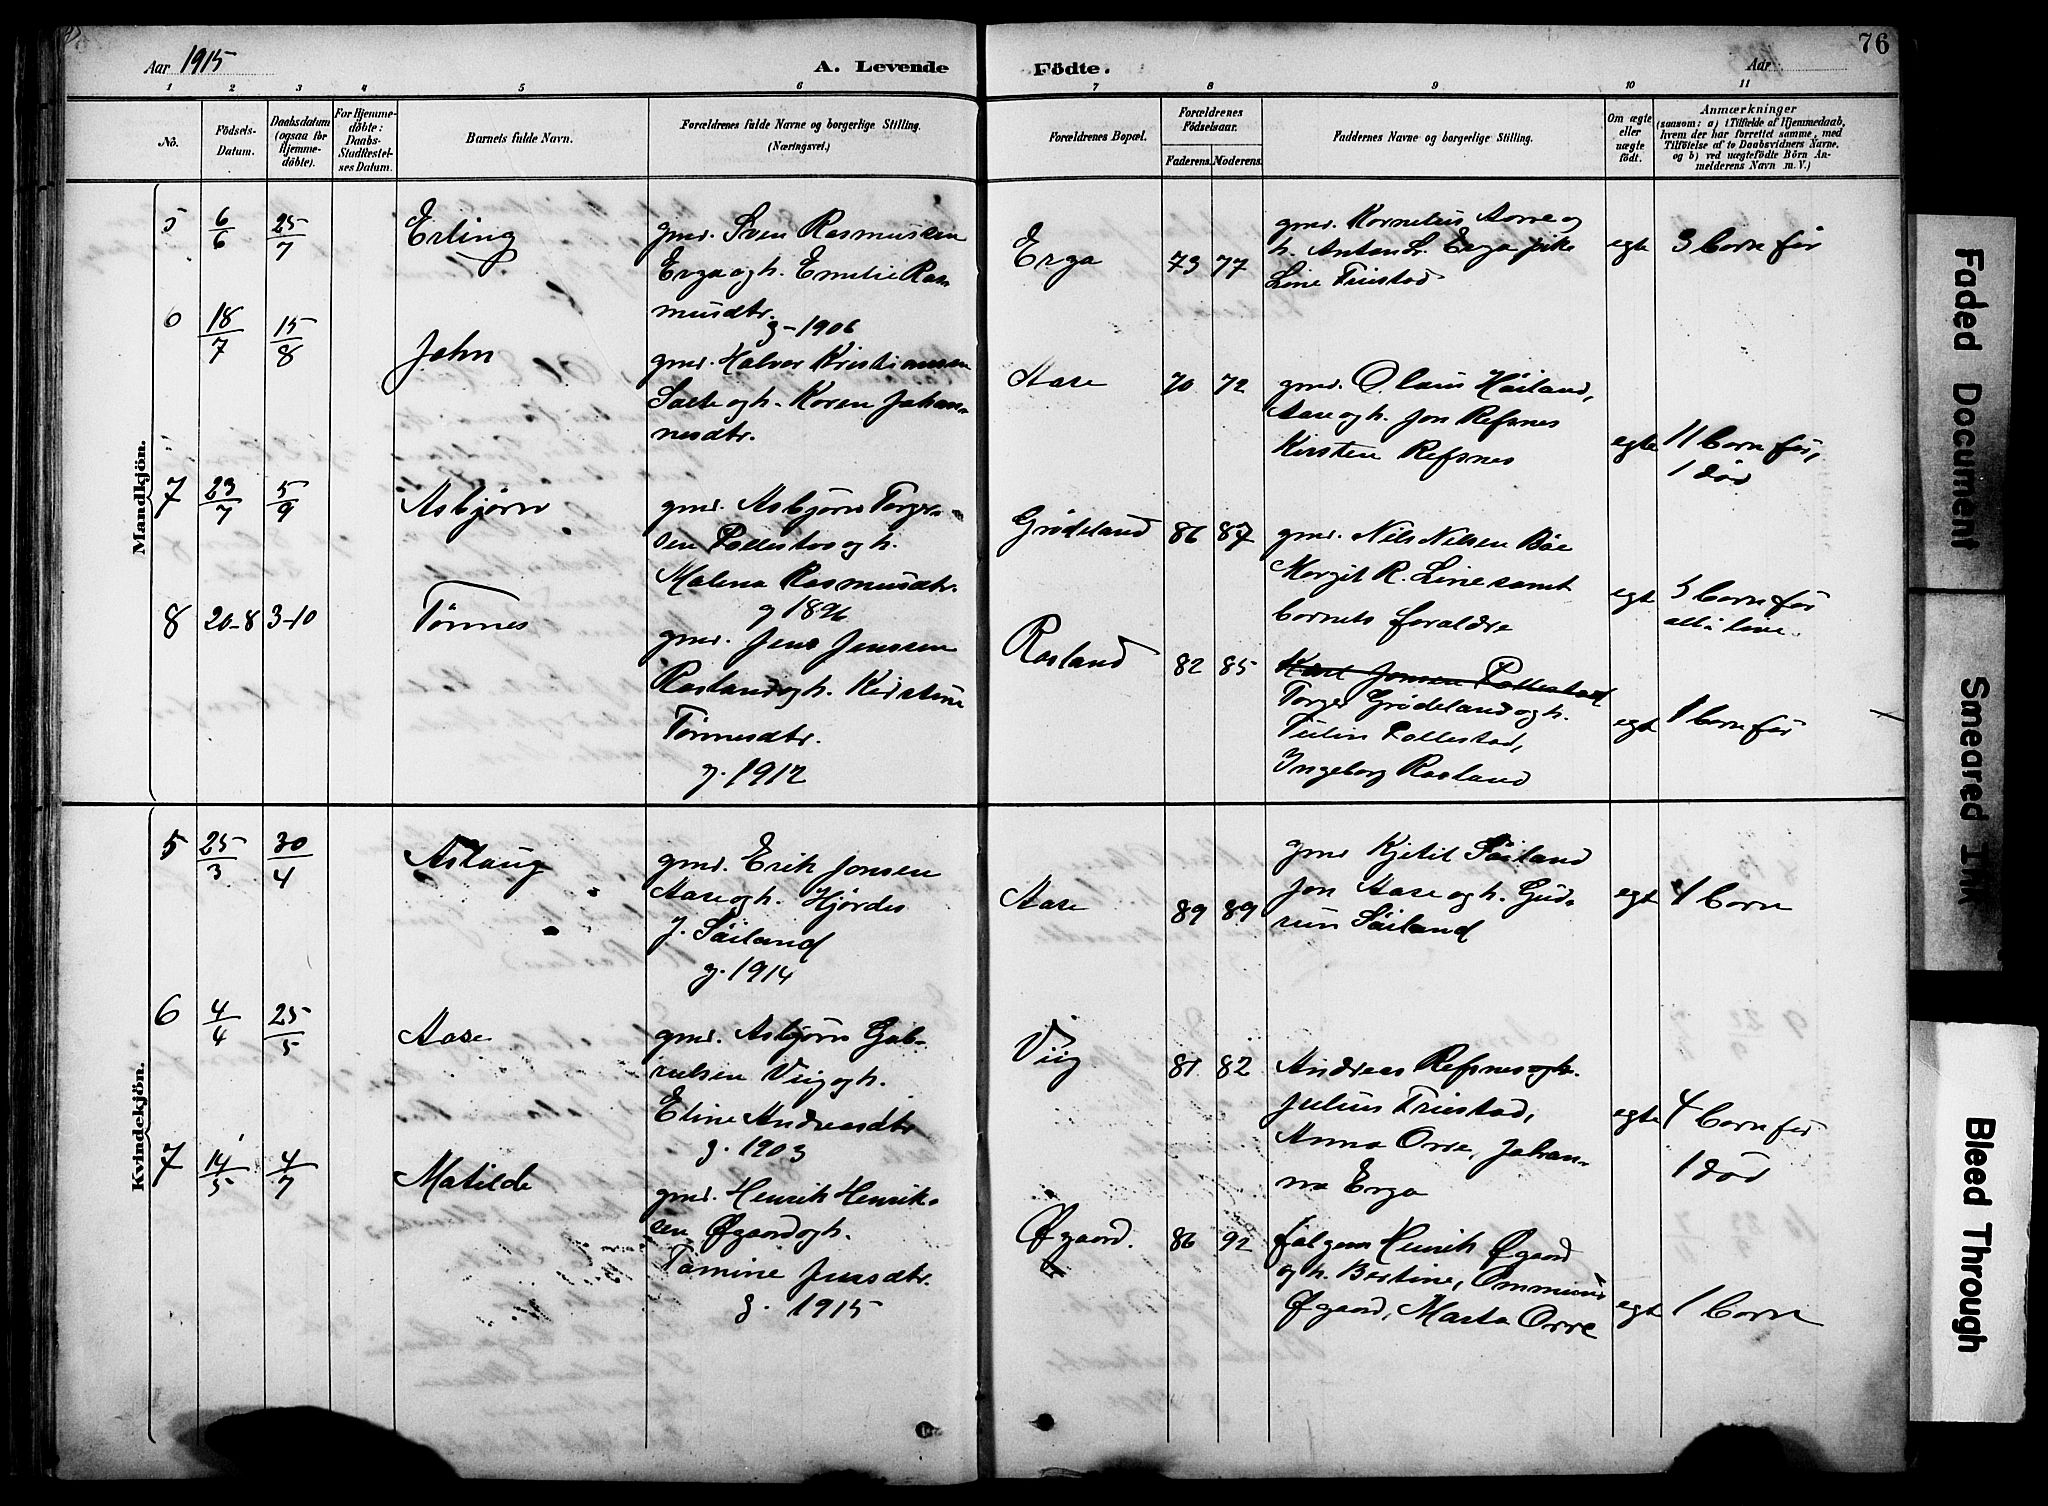 Aar 1915
A. Levende
Födte.
Aar
76
1 2 3 4 5 6 7 8 9 10 11
No.
Födsels-
Datum.
Daabsdatum
(ogsaa for
Hjemme-
döbte).
For Hjemme-
döbte:
Daabs-
Stadfæstel-
ses Datum.
Barnets fulde Navn.
Forældrenes fulde Navne og borgerlige Stilling.
(Næringsvei.)
Forældrenes Bopæl.
Forældrenes
Födselsaar.
Faderens. Moderens.
Faddernes Navne og borgerlige Stilling.
Om ægte
eller
uægte
født.
Anmærkninger
(saasom: a) i Tilfælde af Hjemmedaab,
hvem der har forrettet samme, med
Tilföielse af to Daabsvidners Navne,
og b) ved uægtefödte Börn An-
melderens Navn m. V.)
Mandkjön.
5 6/6 25/7 Erling
gmd. Sven Rasmussen
Erga og h. Emelie Ras
musdtr.
g-1906
Erga 73 77
gmd. Kornelius Aorre og
h. Anton L. Erga pike
Line Friestad
egte 3 born før
6 18/7 15/8 John
gmd. Halvor Kristiansen
Salte og h. Karen Johan-
nesdtr.
Aase 70 72
gmd. Olaus Høiland,
Aase og h. Jon Refsnes
Kirsten Refsnes
egte 11 born før,
1 død
7 23/7 5/9 Asbjørn
gmd. Asbjørn Torger-
sen Pollestad og h.
Malena Rasmusdtr.
g 1896
Grødeland 86 87
gmd. Nils Nilsen Bøe
Margit R. Line samt
bornets foraldre
egte 5 born før
alle i live.
8 20-8 3-10 Tønnes
gmd. Jens Jenssen
Rosland og h. Kirstine
Tønnesdtr.
g. 1912
Rosland 82 85
Karl Jonsen Pollestad
Torger Grødeland og h.
Tulin Pollestad,
Ingeborg Rosland
egte 1 born før
Kvindekjön.
5 25/3 30/4 Aslaug
gmd. Erik Jonsen
Aase og h. Hjørdes
J. Söiland
g. 1914
Aase 89 89
gmd Kjetil Söiland
Jon Aase og h. Gud-
run Söiland
egte 1 born
6 4/4 25/5 Aase
gmd. Asbjørn Gab-
rielsen Viig og h.
Eline Andreasdtr
g. 1903
Viig 81 82
Andreas Refsnes og h.
Julius Friestad,
Anna Orre, Johan-
na Erga
egte 4 born før
1 død
7 14/5 4/7 Matilde
gmd. Henrik Henrik-
sen Øgaard og h.
Tomine Jensdtr.
g. 1915
Øgaard. 86 92
følgem Henrik Øgaard
og h. Bertine, Ommund
Øgaard, Marta Orre
egte 1 born
Faded Document
Smeared Ink
Bleed Through